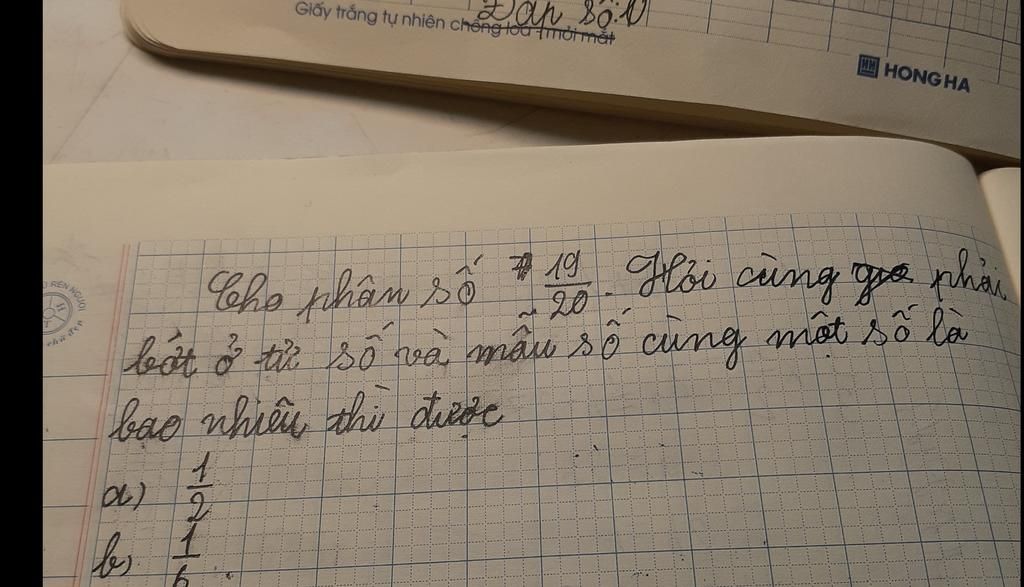 Đáp số: 10
Giấy trắng tự nhiên chống loá - mỏi mắt
HONG HA
Cho phân số 19/20. Hỏi cùng phải
bớt ở tử số và mẫu số cùng một số là
bao nhiêu thì được
a) 1/2
b) 1/6